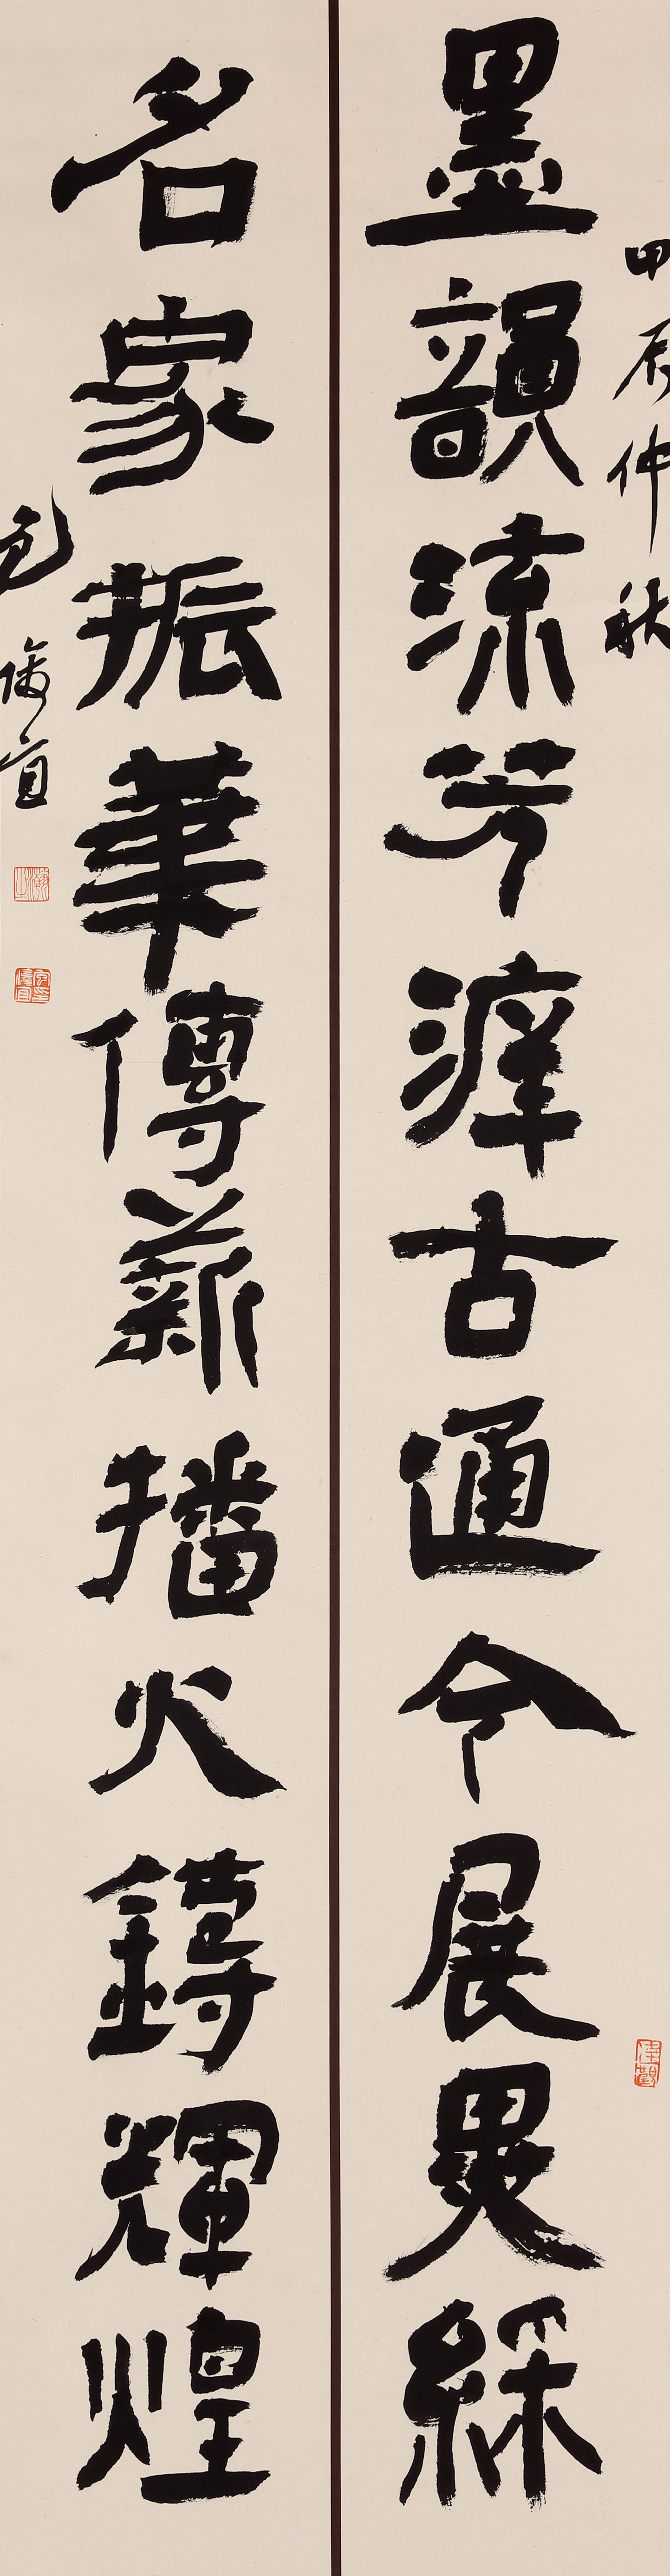 甲辰仲秋
墨韻流芳滓古通今展異綵
名家振華傳薪播火鑄輝煌